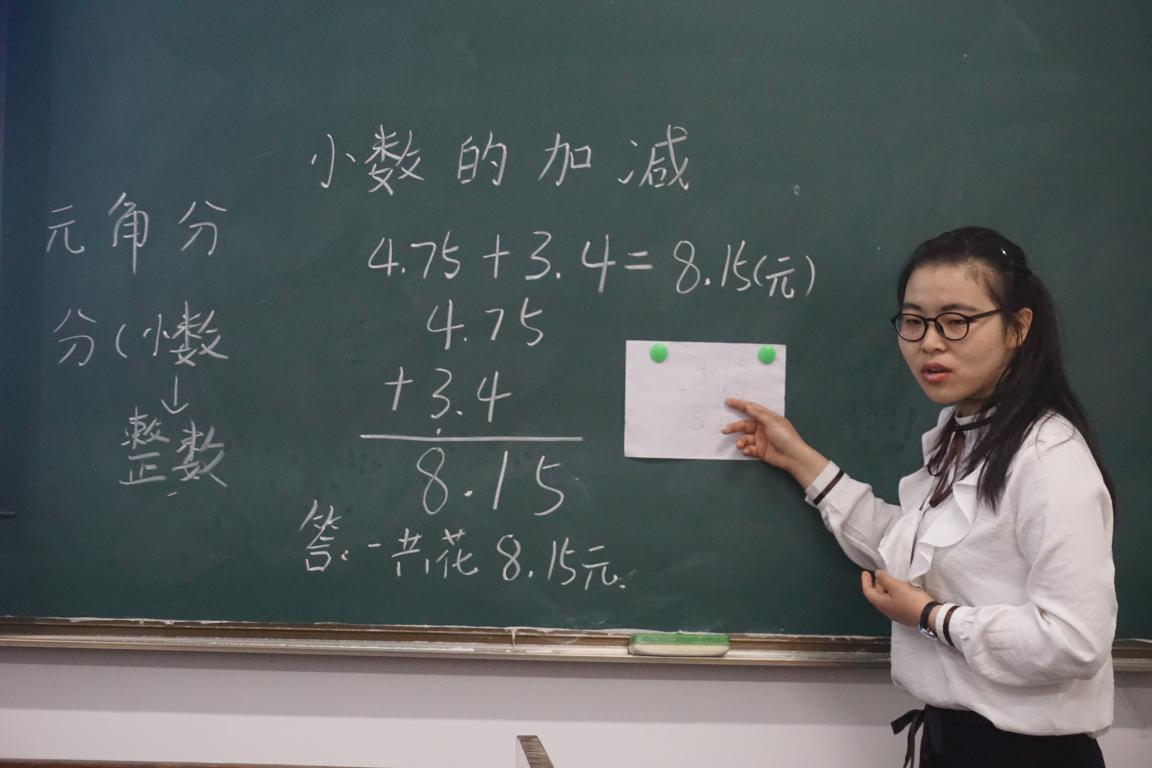 小数的加减
元角分
4.75+3.4=8.15(元)
分(小数
↓
整数
4.75
+3.4
8.15
答:一共花8.15元.